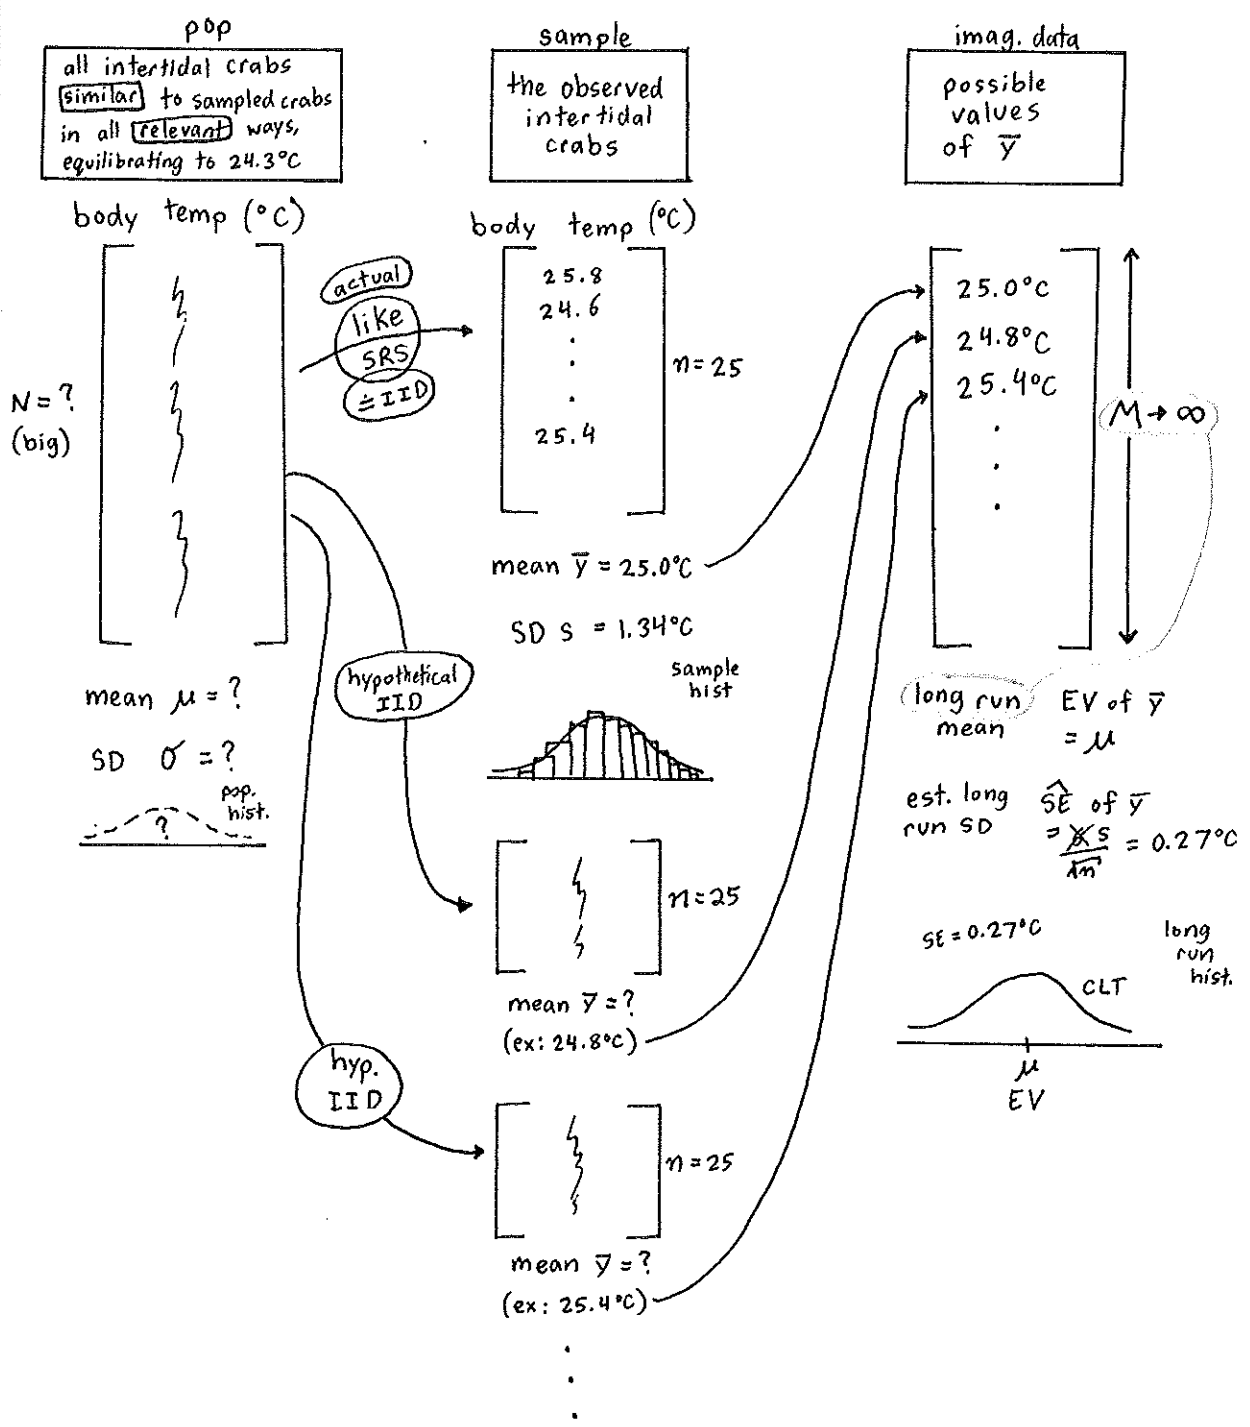 pop
all intertidal crabs
similar to sampled crabs
in all relevant ways,
equilibrating to 24.3°C
body temp (°C)
N = ?
(big)
mean μ = ?
SD σ = ?
pop.
hist.
?
actual
like
SRS
≐ IID
hypothetical
IID
hyp.
IID
sample
the observed
intertidal
crabs
body temp (°C)
25.8
24.6
.
.
.
25.4
n = 25
mean ȳ = 25.0°C
SD s = 1.34°C
sample
hist
n = 25
mean ȳ = ?
(ex: 24.8°C)
n = 25
mean ȳ = ?
(ex: 25.4°C)
.
.
.
imag. data
possible
values
of ȳ
25.0°C
24.8°C
25.4°C
.
.
.
M → ∞
long run EV of ȳ
mean = μ
est. long ŜE of ȳ
run SD = s/√n = 0.27°C
SE = 0.27°C
long
run
hist.
CLT
μ
EV